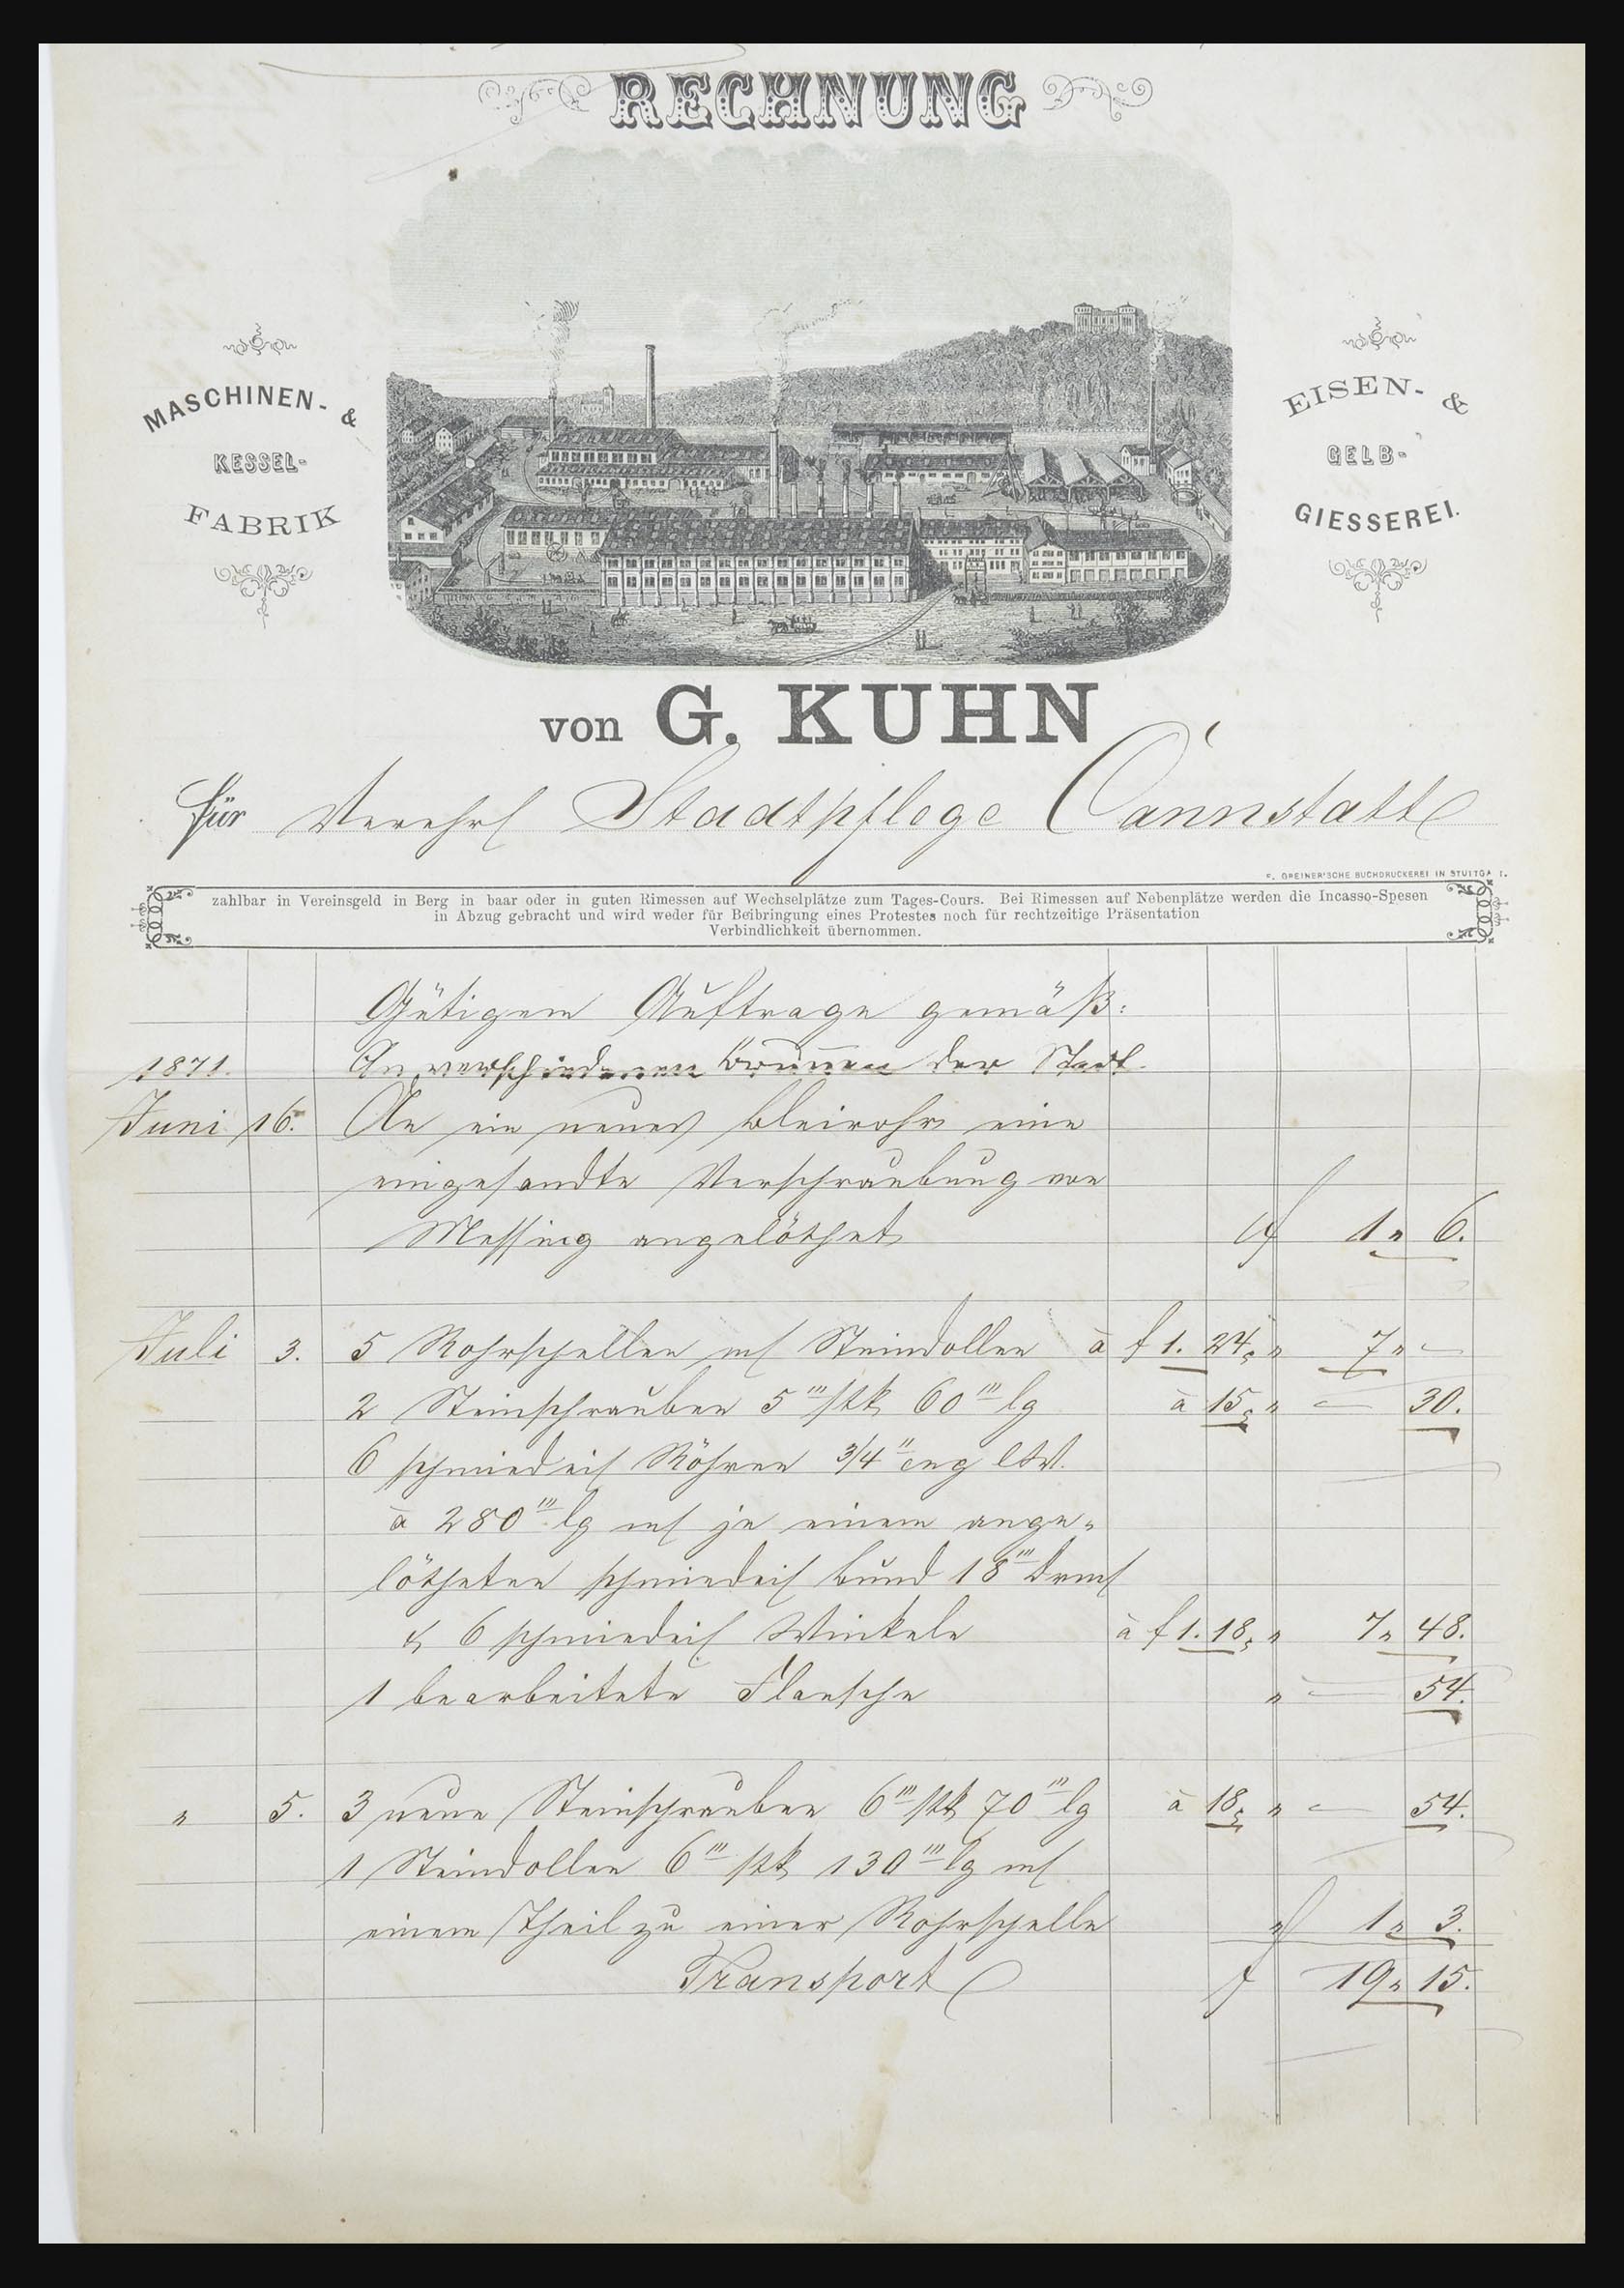 RECHNUNG
MASCHINEN- &
KESSEL-
FABRIK
EISEN- &
GELB-
GIESSEREI.
von G. KUHN
für Verehrl Stadtpflege Cannstatt
C. GREINER'SCHE BUCHDRUCKEREI IN STUTTGART.
zahlbar in Vereinsgeld in Berg in baar oder in guten Rimessen auf Wechselplätze zum Tages-Cours. Bei Rimessen auf Nebenplätze werden die Incasso-Spesen
in Abzug gebracht und wird weder für Beibringung eines Protestes noch für rechtzeitige Präsentation
Verbindlichkeit übernommen.
Gütigem Auftrage gemäß:
1871. An verschiedenen Brunnen der Stadt.
Juni 16. An ein neues Bleirohr eine
eingesandte Verschraubung von
Messing angelöthet f 1 „ 6.
Juli 3. 5 Rohrschellen m/ Steindollen à f 1. 24 „ 7 „ —
2 Steinschrauben 5''' stk 60''' lg à 15 „ — 30.
6 schmiedeis Röhren 3/4'' eng lW.
à 280''' lg m/ je einem ange-
lötheten schmiedeis Bund 18''' Drm
& 6 schmiedeis Winkeln à f 1. 18 „ 7 „ 48.
1 bearbeitete Flansche „ — 54.
„ 5. 3 neue Steinschrauben 6''' stk 70''' lg à 18 „ — 54.
1 Steindollen 6''' stk 130''' lg m/
einem Theil zu einer Rohrschelle „ 1 „ 3.
Transport f 19 „ 15.